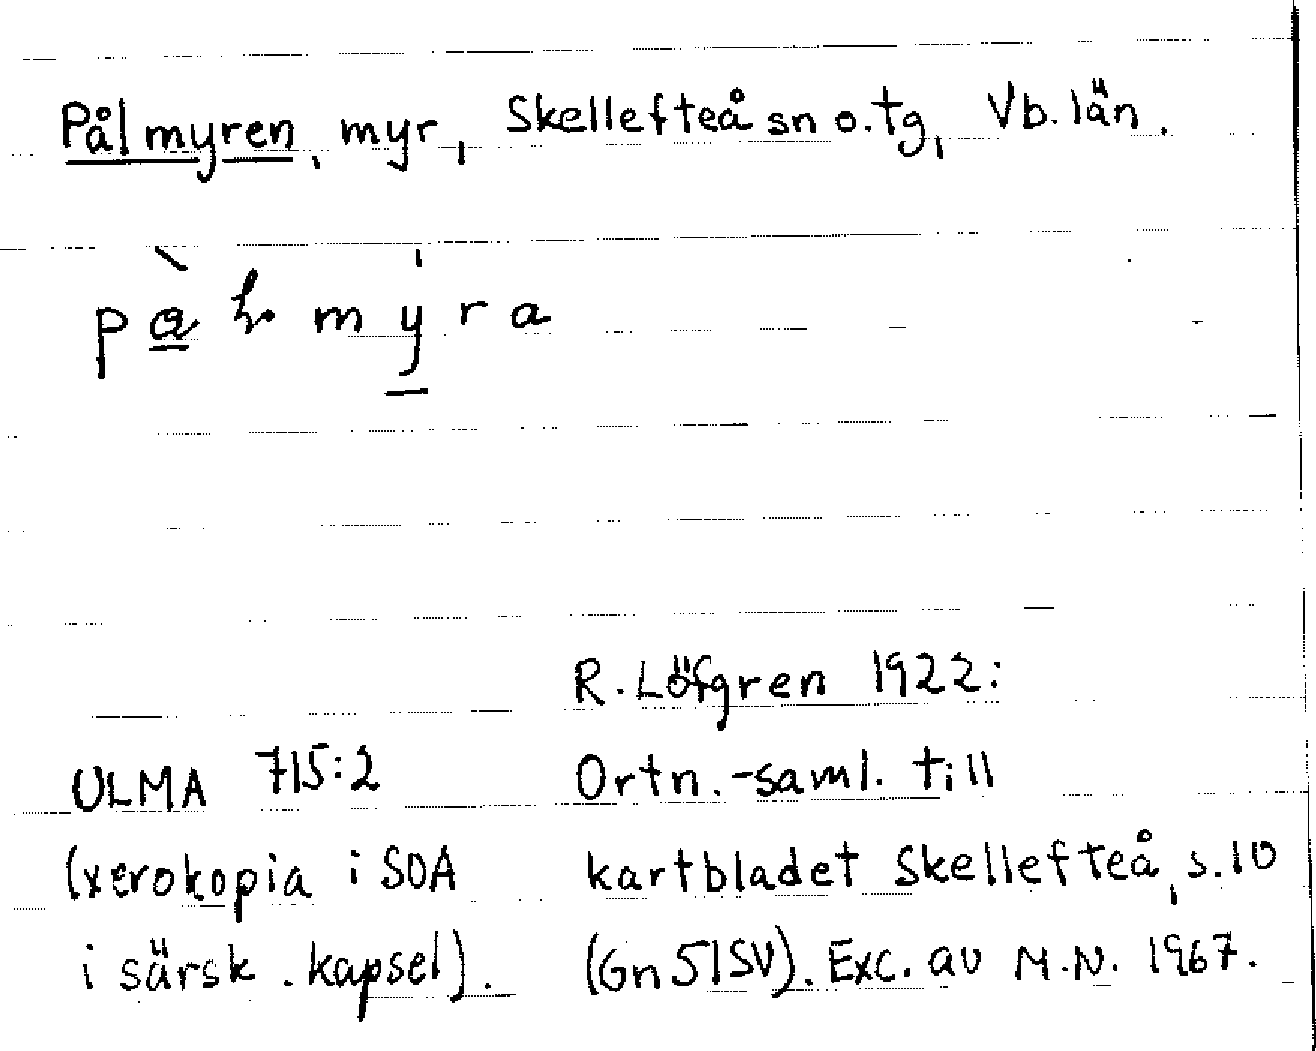 Pålmyren, myr, Skellefteå sn o. tg, Vb. län.
R. Löfgren 1922:
ULMA 715:2 Ortn.-saml. till
(xerokopia i SOA kartbladet Skellefteå, s. 10
i särsk. kapsel). (Gn 51SV). Exc. av M.N. 1967.